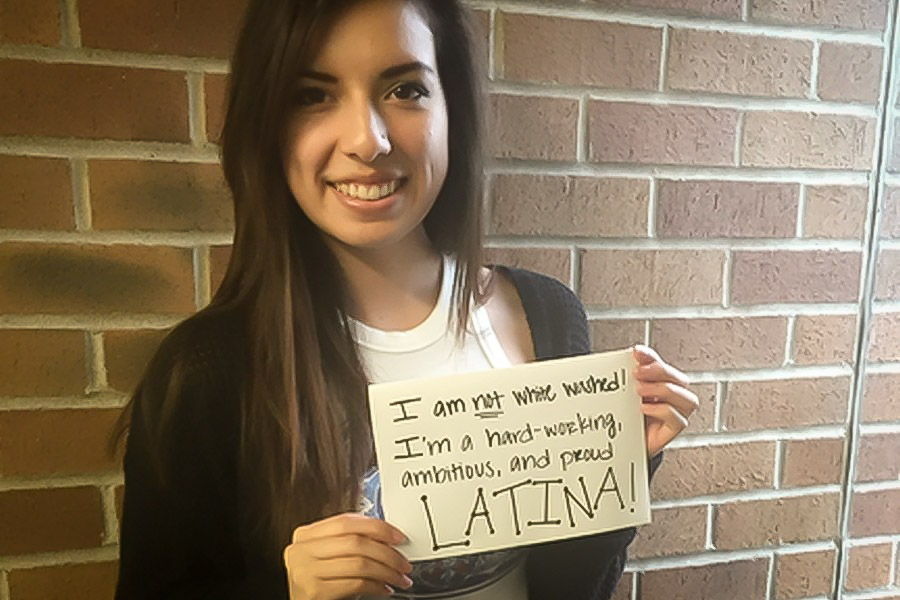 I am not white washed!
I'm a hard-working,
ambitious, and proud
LATINA!